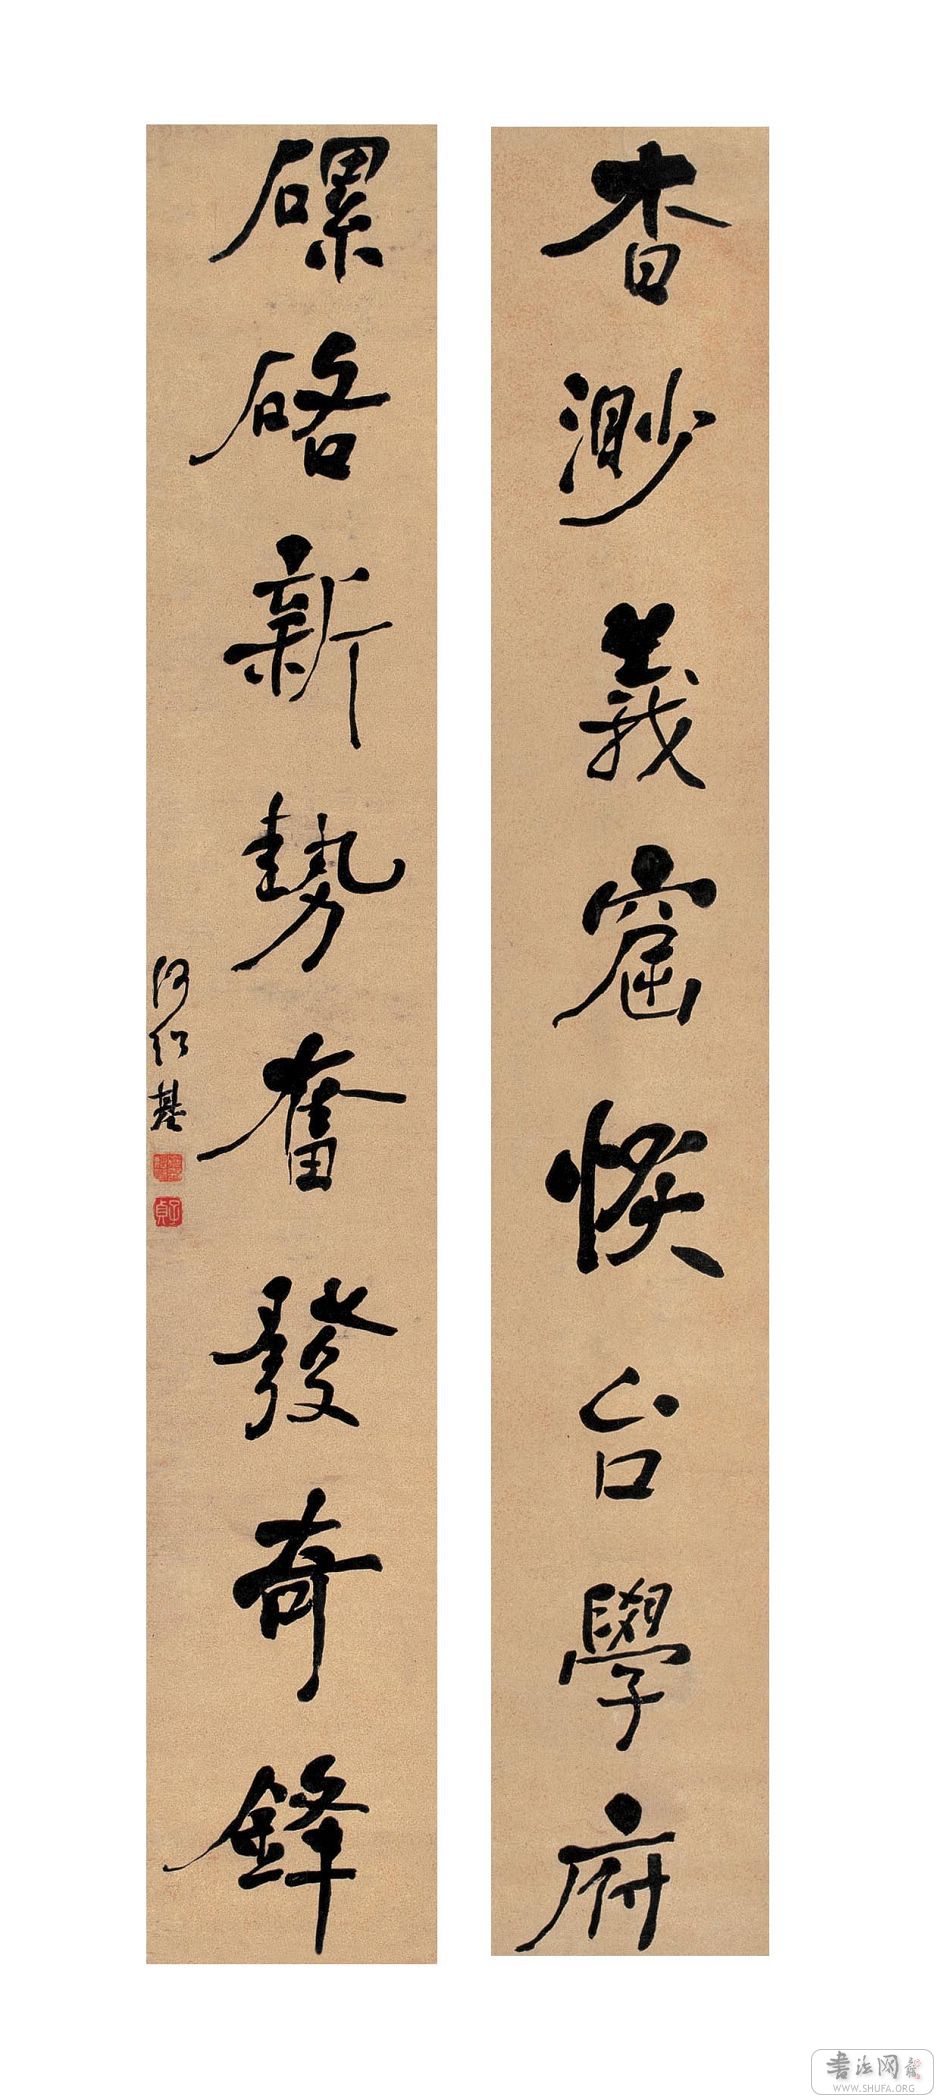 杳渺義窟恢台學府
磥硌新勢奮發奇鋒
何紹基
子貞
書法网
WWW.SHUFA.ORG